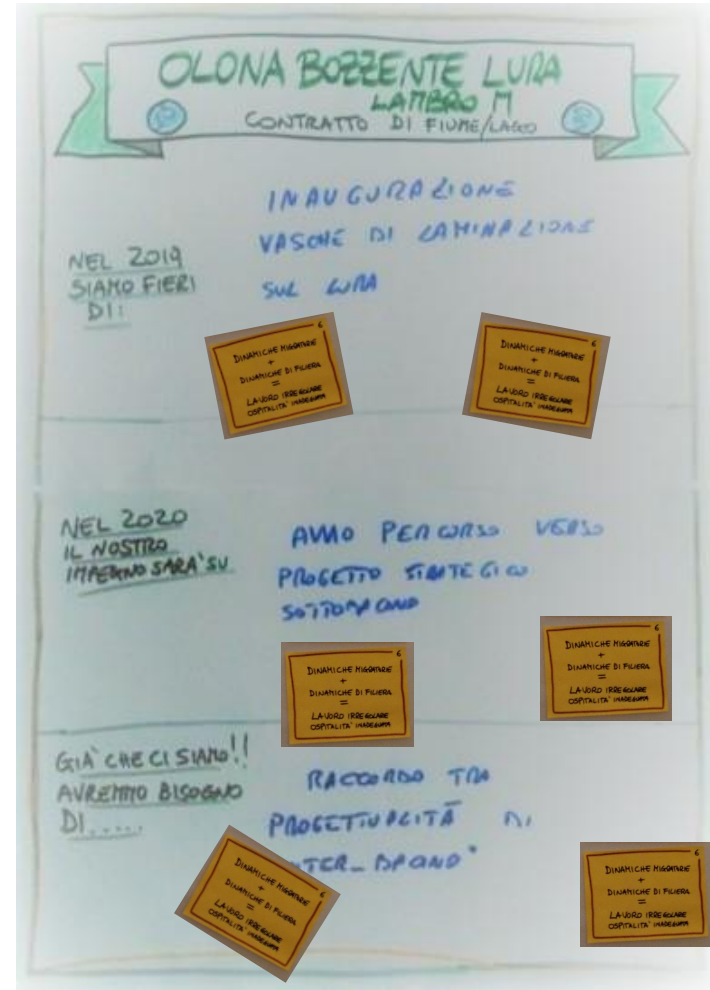 OLONA BOZZENTE LURA
LAMBRO M
CONTRATTO DI FIUME/LAGO
NEL 2019
SIAMO FIERI
DI:
INAUGURAZIONE
VASCHE DI LAMINAZIONE
SUL LURA
6
DINAMICHE MIGRATORIE
+
DINAMICHE DI FILIERA
=
LAVORO IRREGOLARE
OSPITALITA' INADEGUATA
6
DINAMICHE MIGRATORIE
+
DINAMICHE DI FILIERA
=
LAVORO IRREGOLARE
OSPITALITA' INADEGUATA
NEL 2020
IL NOSTRO
IMPEGNO SARA' SU
AVVIO PERCORSO VERSO
PROGETTO STRATEGICO
SOTTOBACINO
6
DINAMICHE MIGRATORIE
+
DINAMICHE DI FILIERA
=
LAVORO IRREGOLARE
OSPITALITA' INADEGUATA
6
DINAMICHE MIGRATORIE
+
DINAMICHE DI FILIERA
=
LAVORO IRREGOLARE
OSPITALITA' INADEGUATA
GIA' CHE CI SIAMO!!
AVREMMO BISOGNO
DI.....
RACCORDO TRA
PROGETTUALITÀ DI
NTER_BACINO"
6
DINAMICHE MIGRATORIE
+
DINAMICHE DI FILIERA
=
LAVORO IRREGOLARE
OSPITALITA' INADEGUATA
6
DINAMICHE MIGRATORIE
+
DINAMICHE DI FILIERA
=
LAVORO IRREGOLARE
OSPITALITA' INADEGUATA